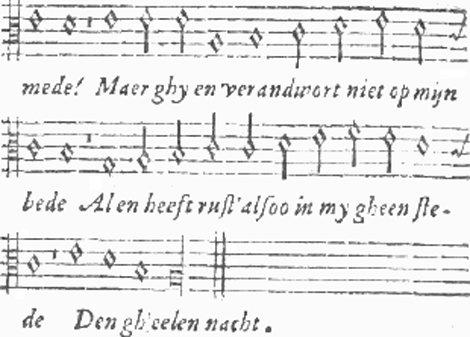 mede! Maer ghy en verandwort niet op mijn
bede Al en heeft rust' alsoo in my gheen ste-
de Den gh'eelen nacht.